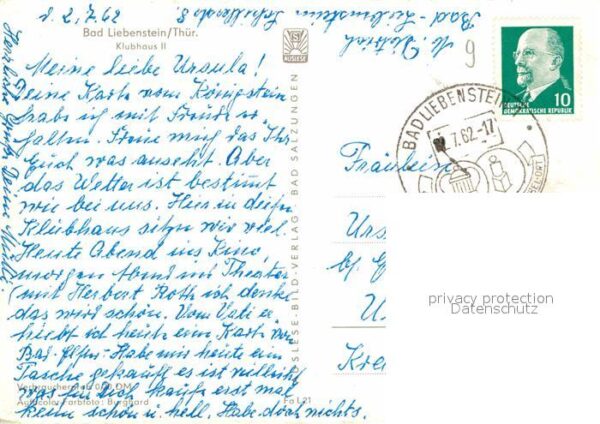 d. 2.7.62
Bad Liebenstein/Thür.
Klubhaus II
Meine liebe Ursula!
Deine Karte vom Königstein
habe ich mit Freude er-
halten. Freue mich das Ihr
Euch was anseht. Aber
das Wetter ist bestimmt
wie bei uns. Hier in dein
Klubhaus sitzen wir viel.
Heute Abend ins Kino,
morgen Abend ins Theater
(mit Herbert Roth ich denke
das wird schön. Vom Vati er-
hielt ich heute eine Karte von
Bad-Elster. Habe mir heute ein
Tasche gekauft es ist vielleicht
was für Dich kaufe erst mal
keine schön u. hell. Habe doch nichts.
Herzliche Grüße Deine Mutti
Verbraucherpreis 0,20 DM
Aufocolor-Farbfoto: Burghard
Fo L 21
AUSLESE-BILD-VERLAG BAD SALZUNGEN
AUSLESE
Bad-Liebenstein
9
DEUTSCHE
DEMOKRATISCHE REPUBLIK
10
BAD LIEBENSTEIN
2.7.62-17
Fräulein
Urs
b/
U
Kre
privacy protection
Datenschutz